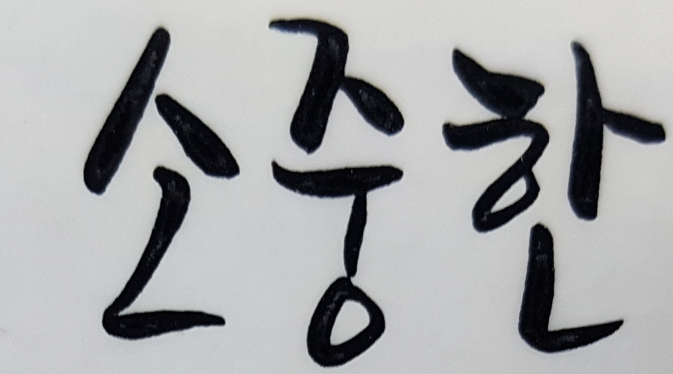 소중한